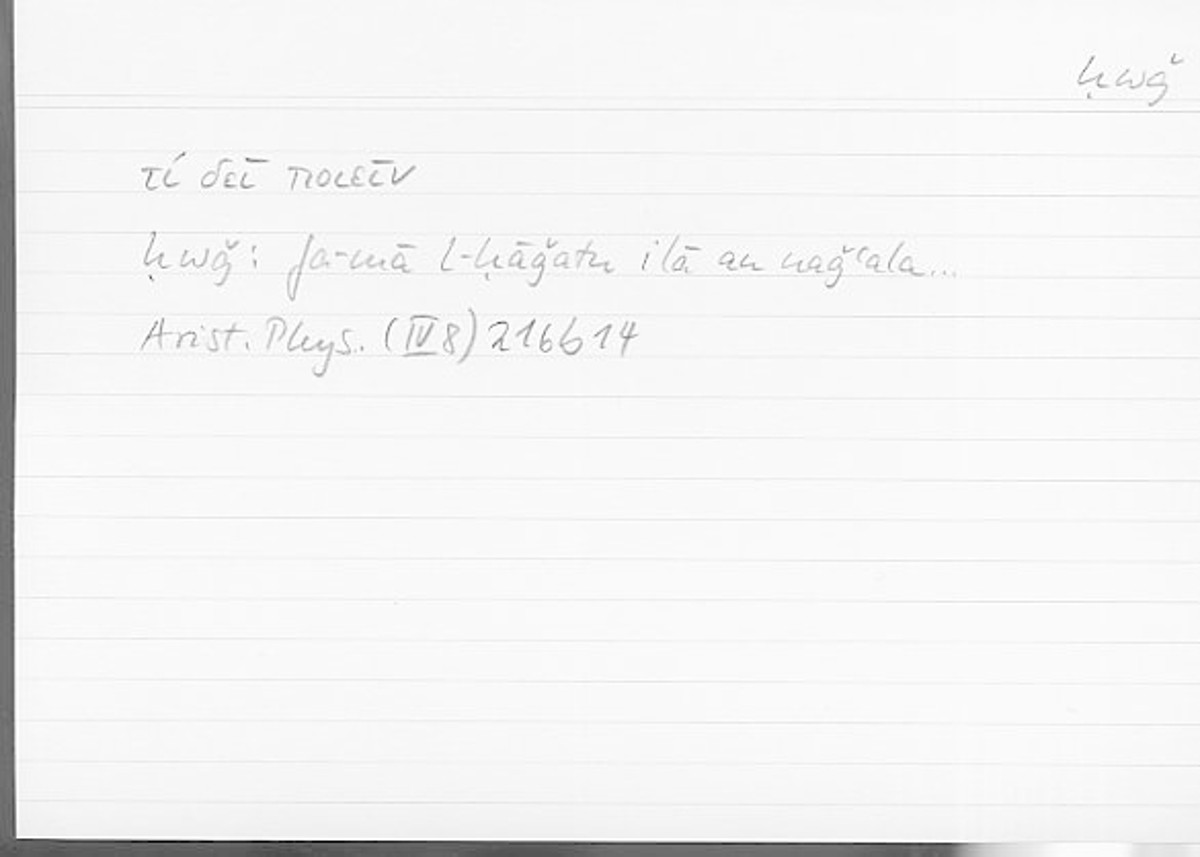 ḥwǧ
τί δεῖ ποιεῖν
ḥwǧ: fa-mā l-ḥāǧatu ilā an naǧʿala...
Arist. Phys. (IV 8) 216b14